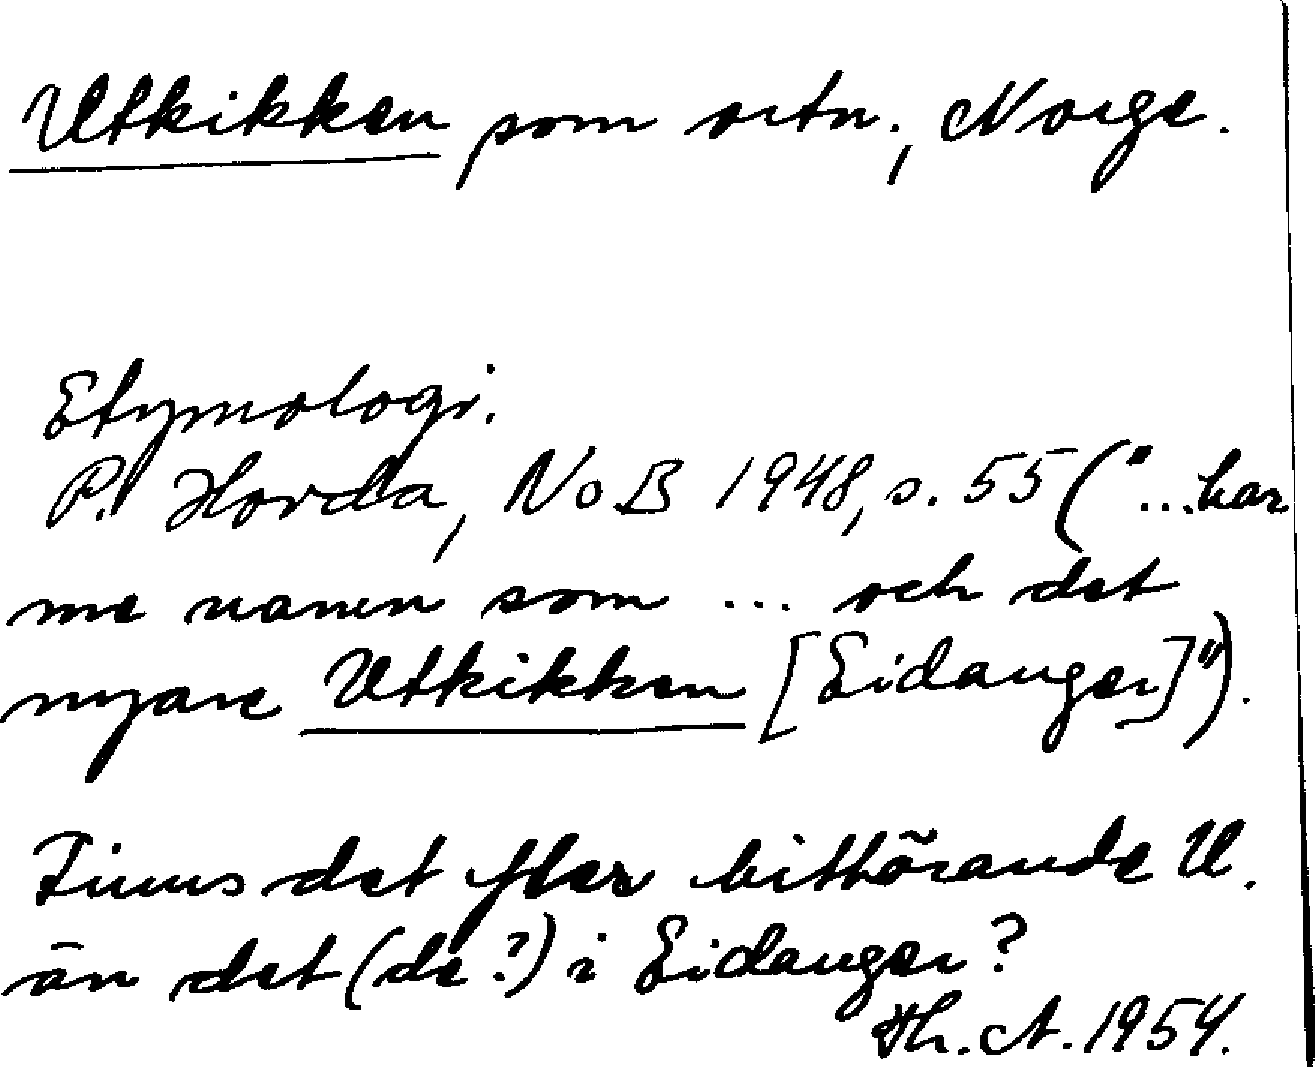 Utkikken som ortn., Norge.
Etymologi.
P. Hovda, NoB 1948, s. 55 ("...har
me namn som ... och det
nyare Utkikken [Eidanger]").
Finns det fler hithörande U.
än det (de?) i Eidanger?
Th. A. 1954.